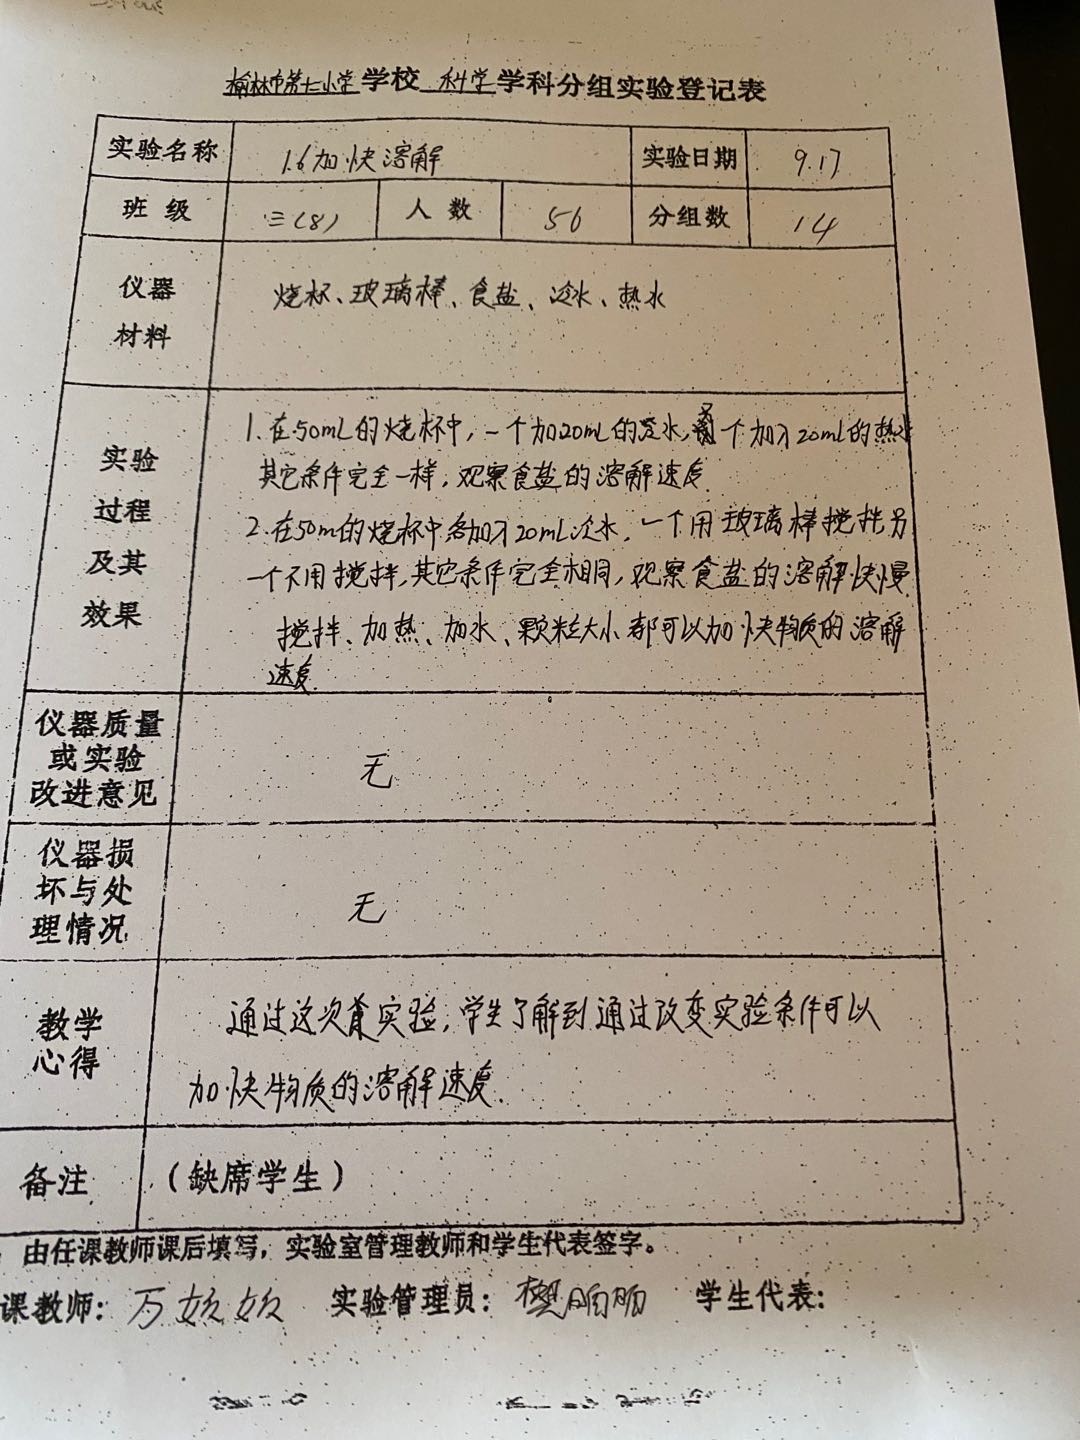 榆林市第十一小学学校 科学学科分组实验登记表
实验名称 1.6加快溶解 实验日期 9.17
班级 三(8) 人数 56 分组数 14
仪器材料 烧杯、玻璃棒、食盐、冷水、热水
实验过程及其效果
1.在50mL的烧杯中,一个加20mL的冷水,另一个加入20mL的热水
其它条件完全一样,观察食盐的溶解速度.
2.在50m的烧杯中各加入20mL冷水,一个用玻璃棒搅拌另
一个不用搅拌,其它条件完全相同,观察食盐的溶解快慢
搅拌、加热、加水、颗粒大小都可以加快物质的溶解
速度.
仪器质量或实验改进意见 无
仪器损坏与处理情况 无
教学心得
通过这次实验,学生了解到通过改变实验条件可以
加快物质的溶解速度.
备注 (缺席学生)
由任课教师课后填写,实验室管理教师和学生代表签字。
课教师: 万姣姣 实验管理员: 樊丽丽 学生代表: